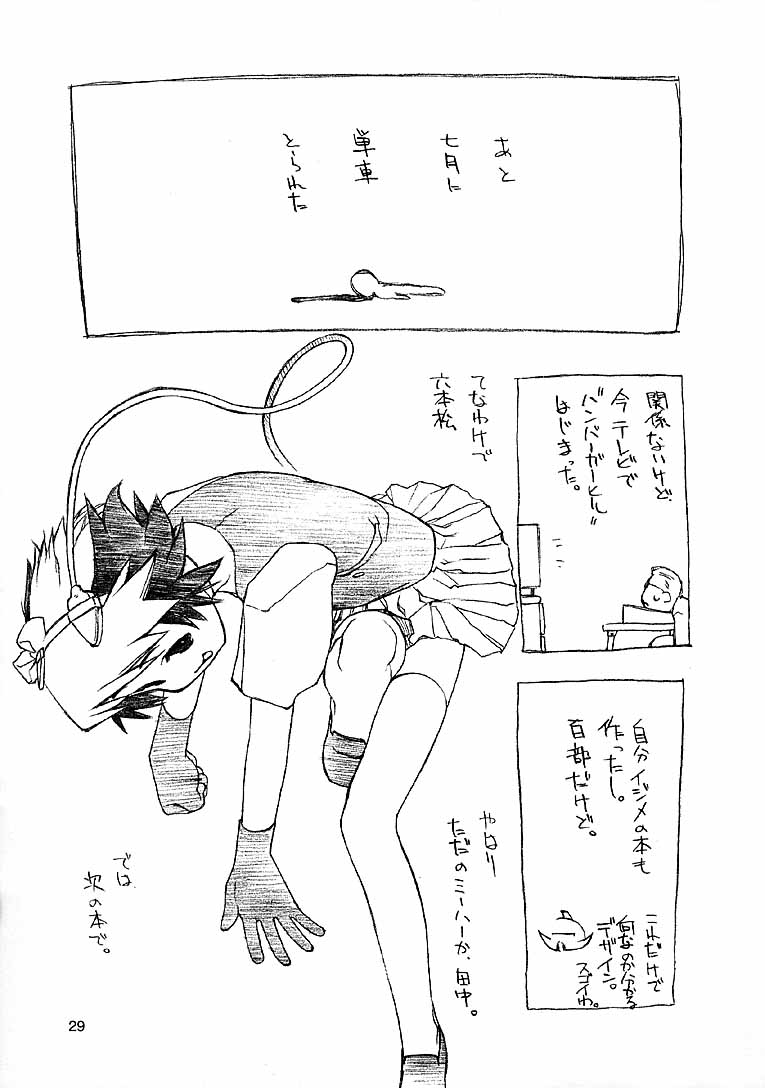 あと
七月に
単車
とられた
てなわけで
六本松
関係ないけど、
今テレビで
"バンパーガーヒル"
はじまった。
自分イジメの本も
作ったし。
百部だけど。
これだけで
何なのか分かる
デザイン。
スゴイわ。
やはり
ただのミーハーか、田中。
では
次の本で。
29